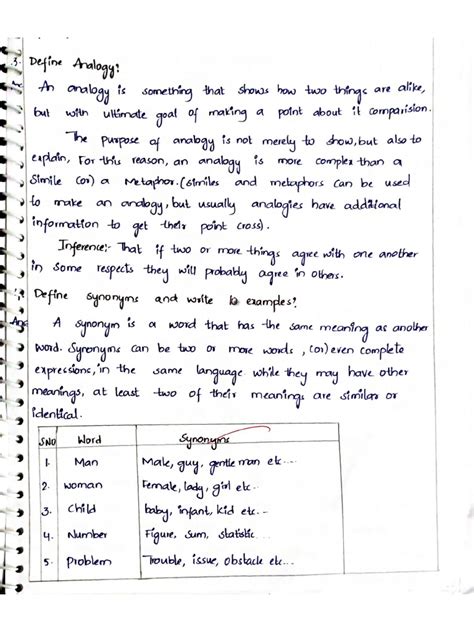 3. Define Analogy?
Ans An analogy is something that shows how two things are alike,
but with ultimate goal of making a point about it comparision.
The purpose of analogy is not merely to show, but also to
explain, For this reason, an analogy is more complex than a
Simile (or) a Metaphor. (similes and metaphors can be used
to make an analogy, but usually analogies have additional
information to get their point cross).
Inference:- That if two or more things agree with one another
in some respects they will probably agree in others.
Define synonyms and write 10 examples?
Ans A synonym is a word that has the same meaning as another
word. Synonyms can be two or more words, (or) even complete
expressions, in the same language while they may have other
meanings, at least two of their meanings are similar or
identical.
SNO Word Synonyms
1. Man Male, guy, gentle man etc...
2. woman Female, lady, girl etc...
3. Child baby, infant, kid etc...
4. Number Figure, Sum, statistic...
5. Problem Trouble, issue, obstacle etc...